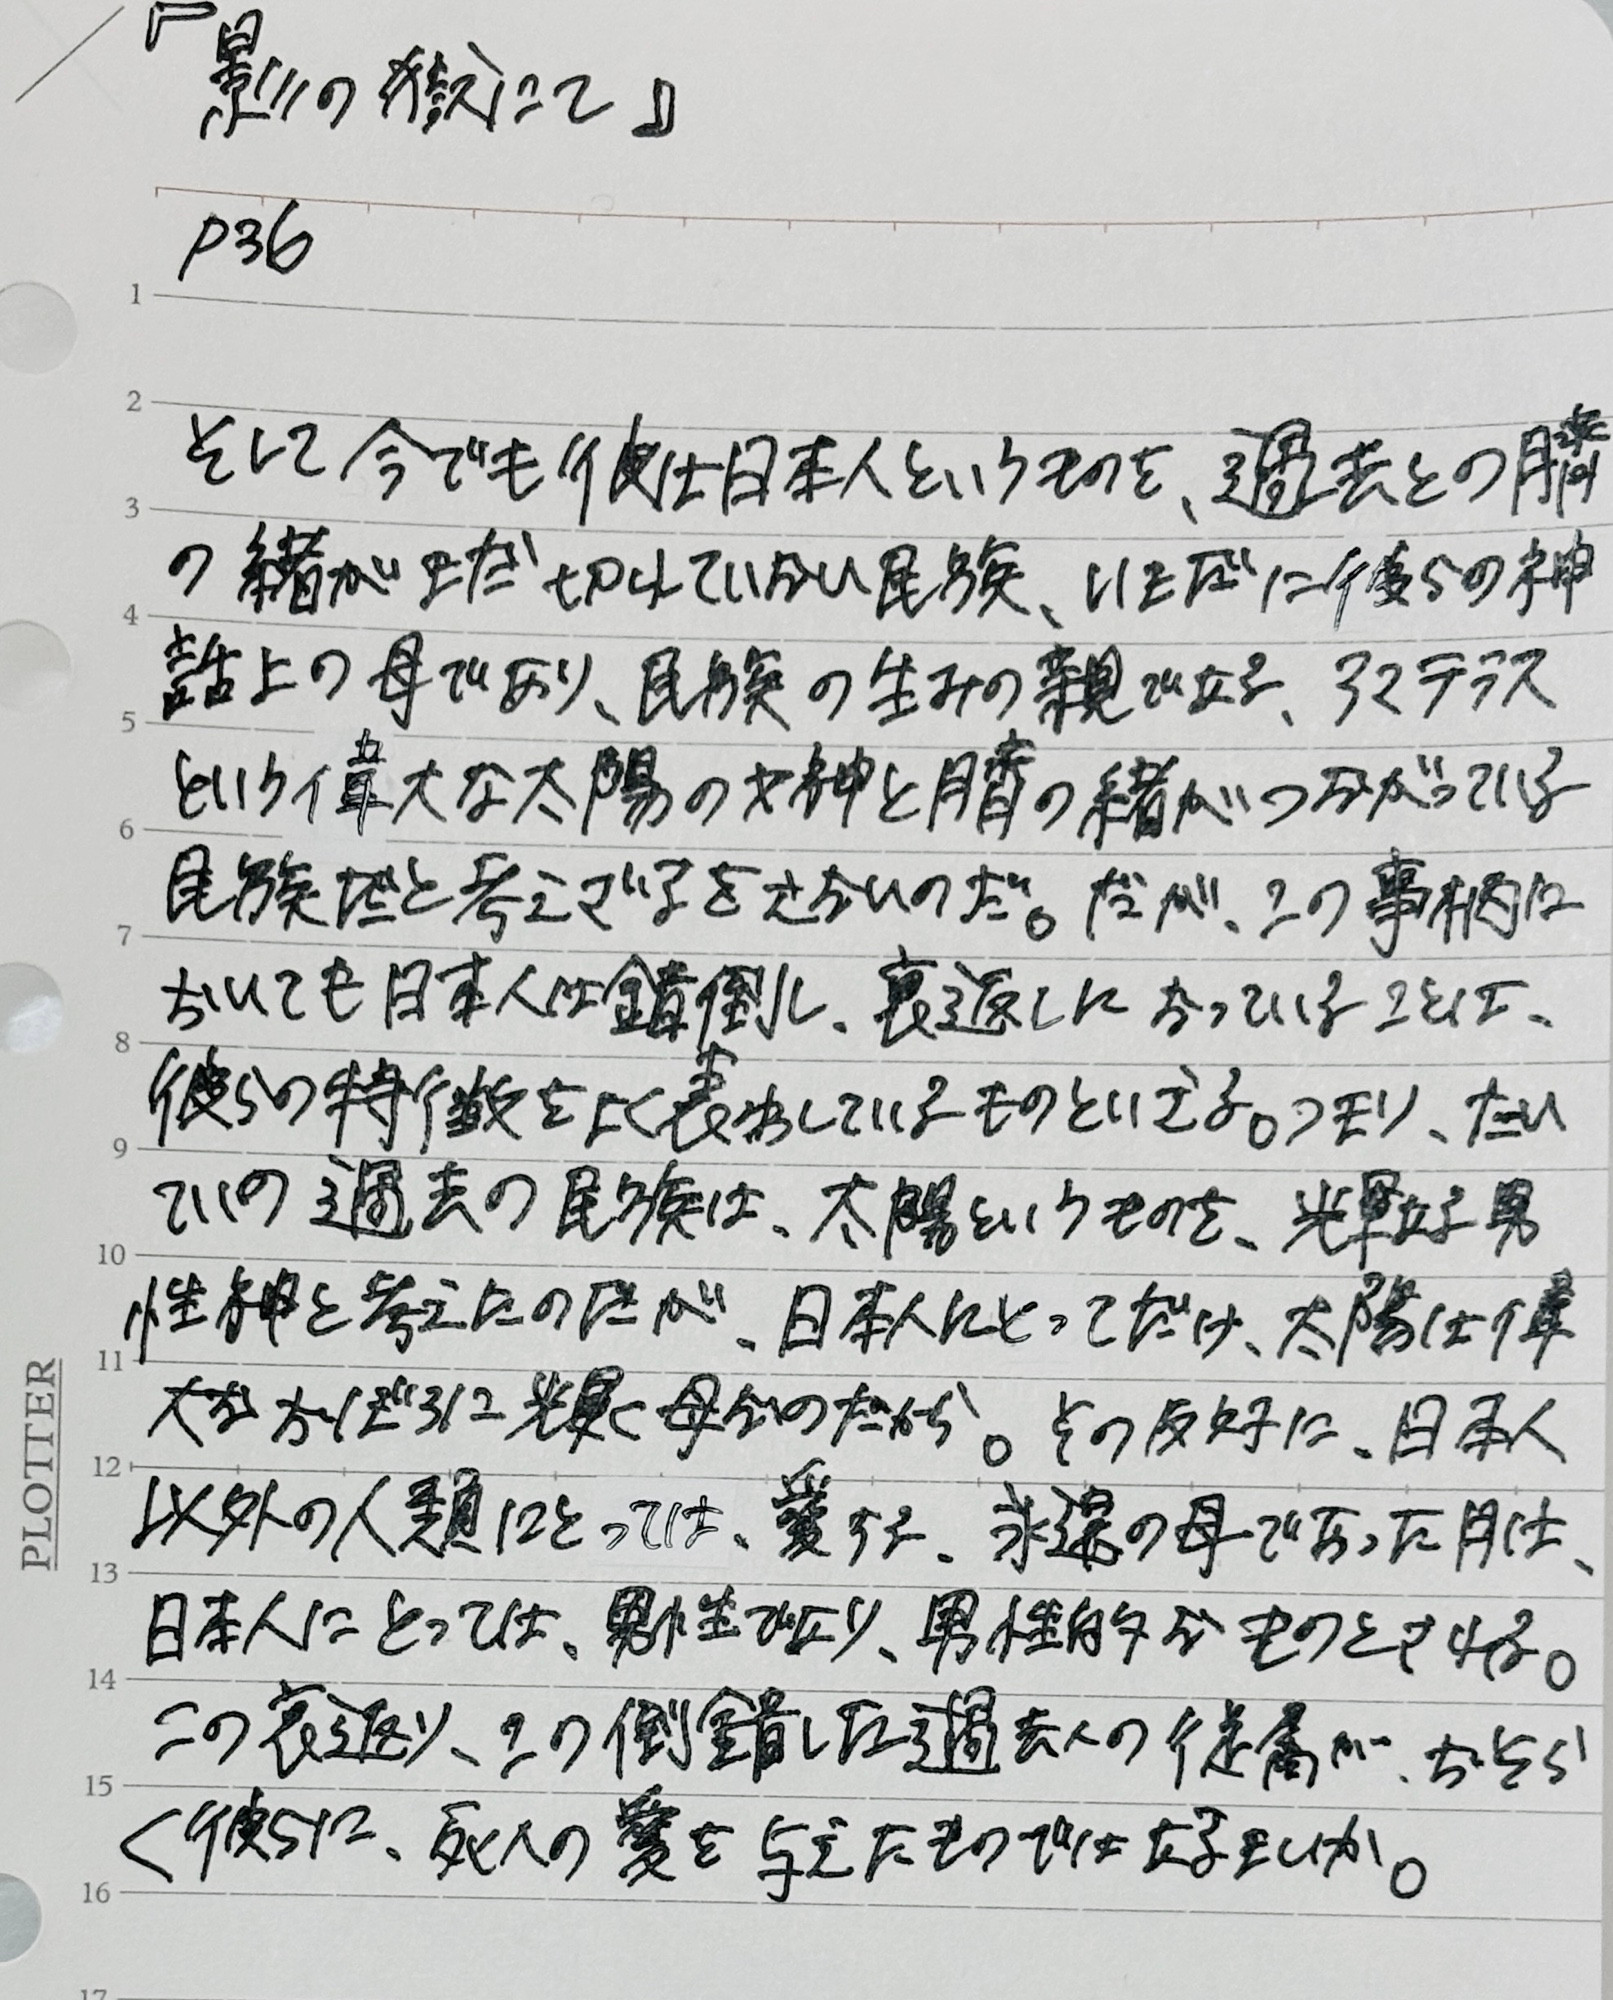 『影の獄にて』
P36
1
2
そして今でも彼は日本人というものを、過去との臍
3
の緒がまだ切れていない民族、いまだに彼らの神
4
話上の母であり、民族の生みの親である、アマテラス
5
という偉大な太陽の女神と臍の緒がつながっている
6
民族だと考えざるをえないのだ。だが、この事柄に
7
おいても日本人は錯倒し、裏返しになっていることは、
8
彼らの特徴をよく表わしているものといえる。つまり、たい
9
ていの過去の民族は、太陽というものを、光輝ある男
10
性神と考えたのだが、日本人にとってだけ、太陽は偉
11
大なおぼろに光輝く母なのだから。その反対に、日本人
12
以外の人類にとっては、愛する、永遠の母であった月は、
13
日本人にとっては、男性であり、男性的なものとされる。
14
この裏返り、この倒錯した過去への従属が、おそら
15
く彼らに、死への愛を与えたものではあるまいか。
16
17
PLOTTER